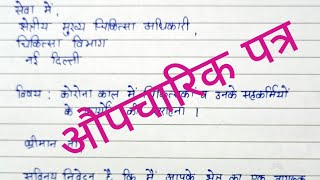 सेवा में,
क्षेत्रीय मुख्य चिकित्सा अधिकारी,
चिकित्सा विभाग
नई दिल्ली
विषय : कोरोना काल में चिकित्सकों व उनके सहकर्मियों
के की सराहना ।
श्रीमान जी
सविनय निवेदन है कि मैं आपके क्षेत्र का एक जागरूक
औपचारिक पत्र